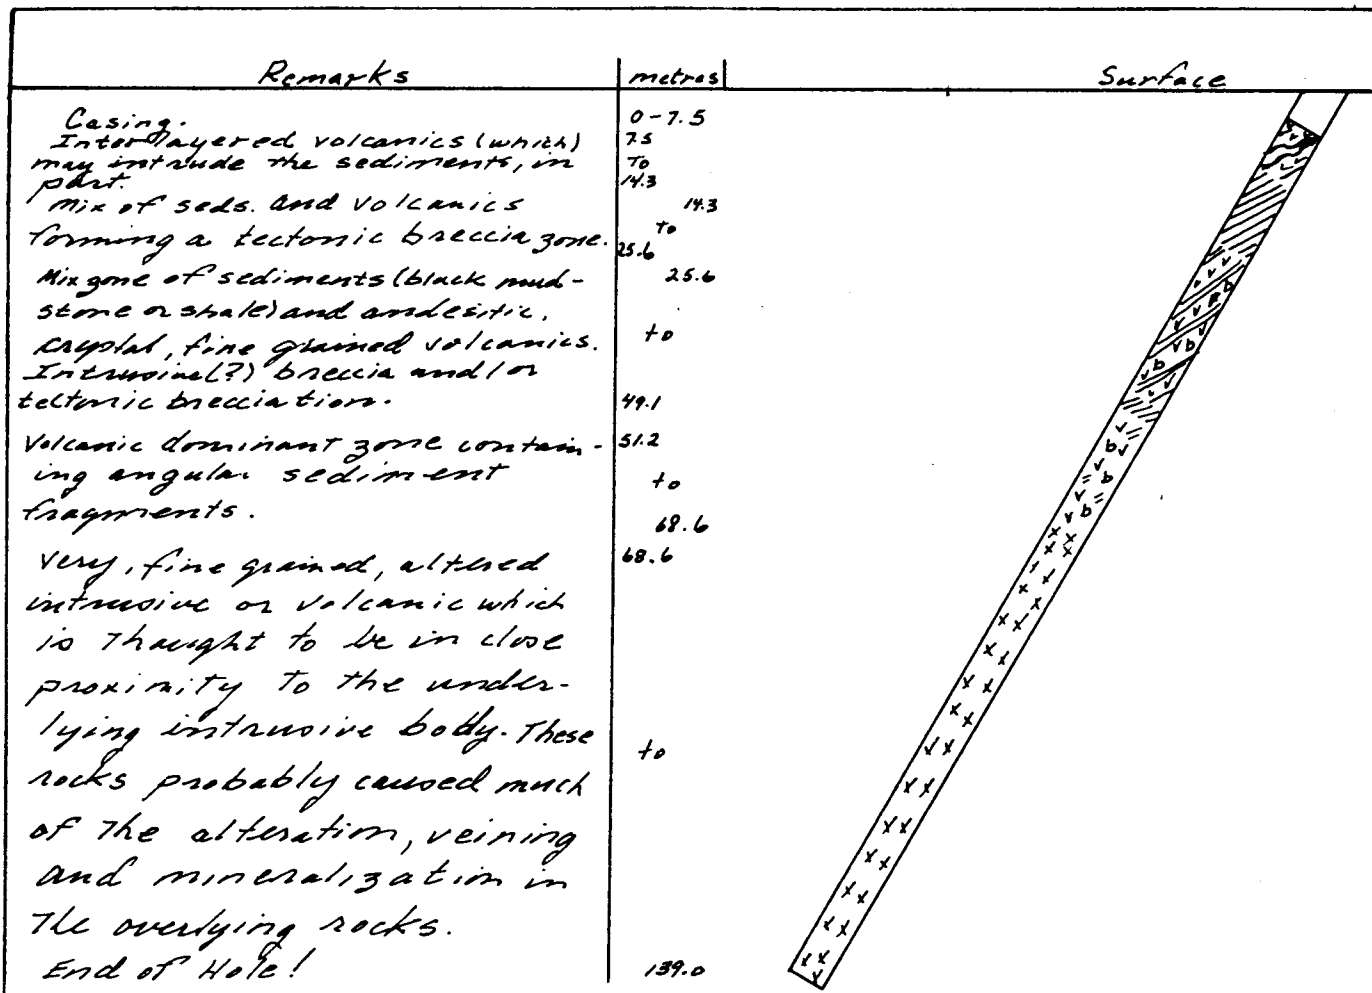 Remarks metres Surface
Casing. 0-7.5
Interlayered volcanics (which) 7.5
may intrude the sediments, in To
part. 14.3
Mix of seds. and volcanics 14.3
forming a tectonic breccia zone. To
25.6
Mix zone of sediments (black mud- 25.6
stone or shale) and andesitic,
crystal, fine grained volcanics. to
Intrusive(?) breccia and/or
tectonic brecciation. 49.1
Volcanic dominant zone contain- 51.2
ing angular sediment to
fragments. 68.6
Very, fine grained, altered 68.6
intrusive or volcanic which
is thought to be in close
proximity to the under-
lying intrusive body. These to
rocks probably caused much
of the alteration, veining
and mineralization in
the overlying rocks.
End of Hole! 139.0